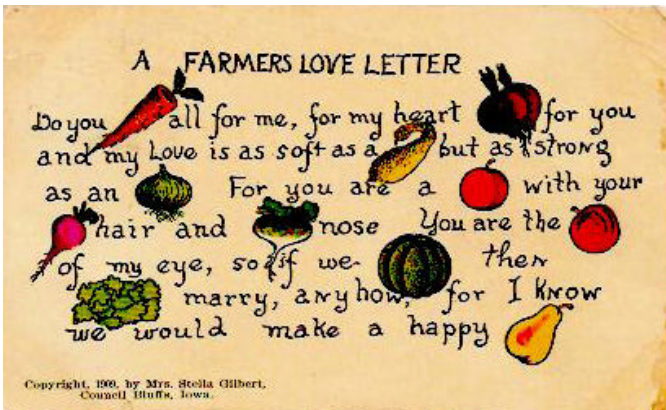 A FARMERS LOVE LETTER
Do you all for me, for my heart for you
and my Love is as soft as a but as strong
as an For you are a with your
hair and nose You are the
of my eye, so if we then
marry, anyhow, for I know
we would make a happy
Copyright, 1909, by Mrs. Stella Gilbert,
Council Bluffs, Iowa.